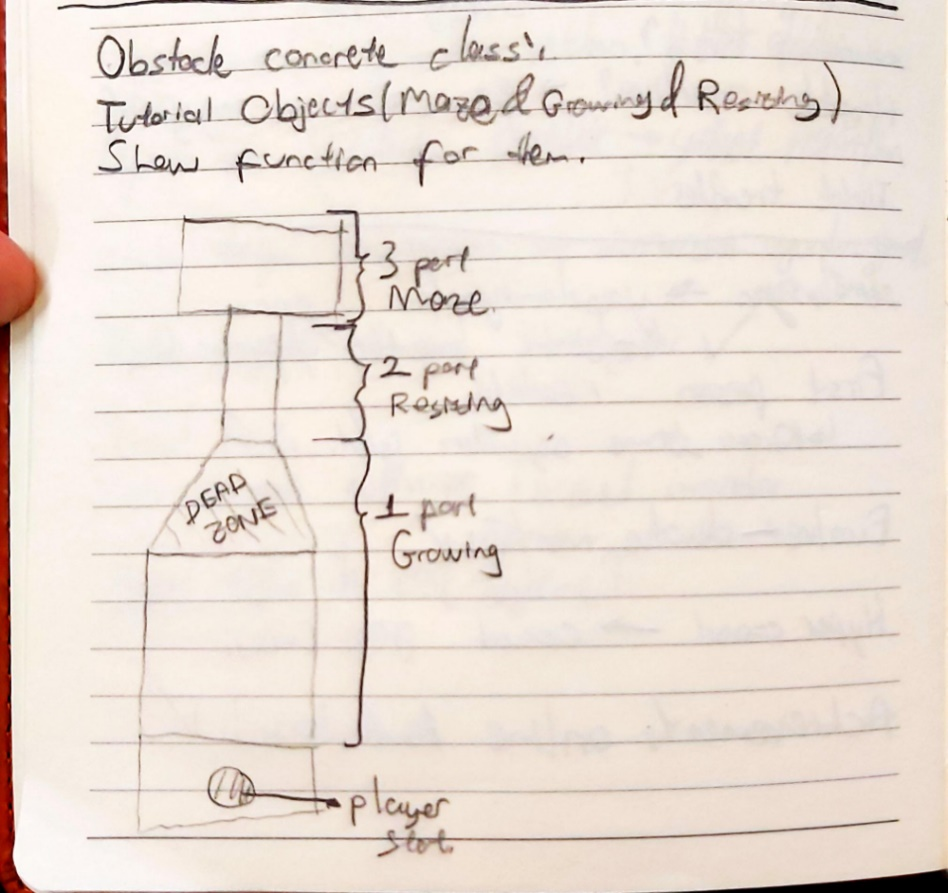 Obstacle concrete class',
Tutorial Objects (Maze & Growing & Resizing)
Show function for them.
3 part
Maze.
2 part
Resizing
DEAD
ZONE
1 part
Growing
player
slot.